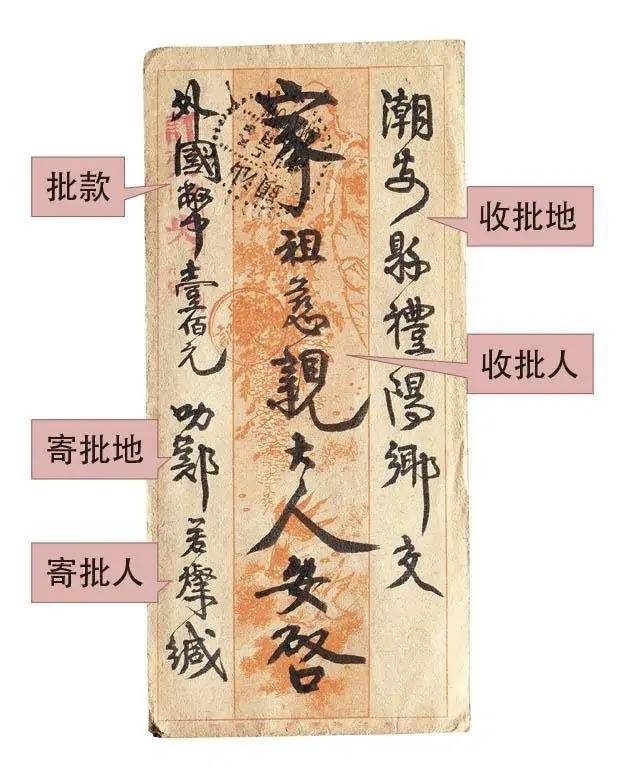 潮安縣禮陽鄉交
家祖慈親大人安啓
外國幣壹佰元
叻鄭若燦緘
批款
寄批地
寄批人
收批地
收批人